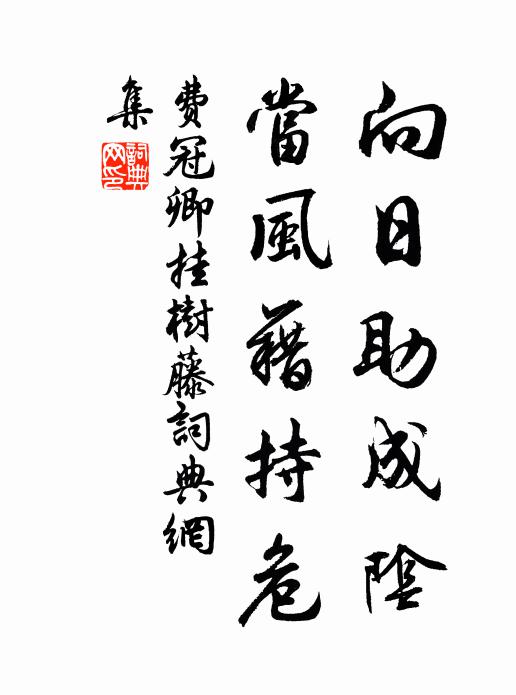 向日助成陰
當風藉持危
費冠卿挂樹藤詞典網
集
詞典
网印